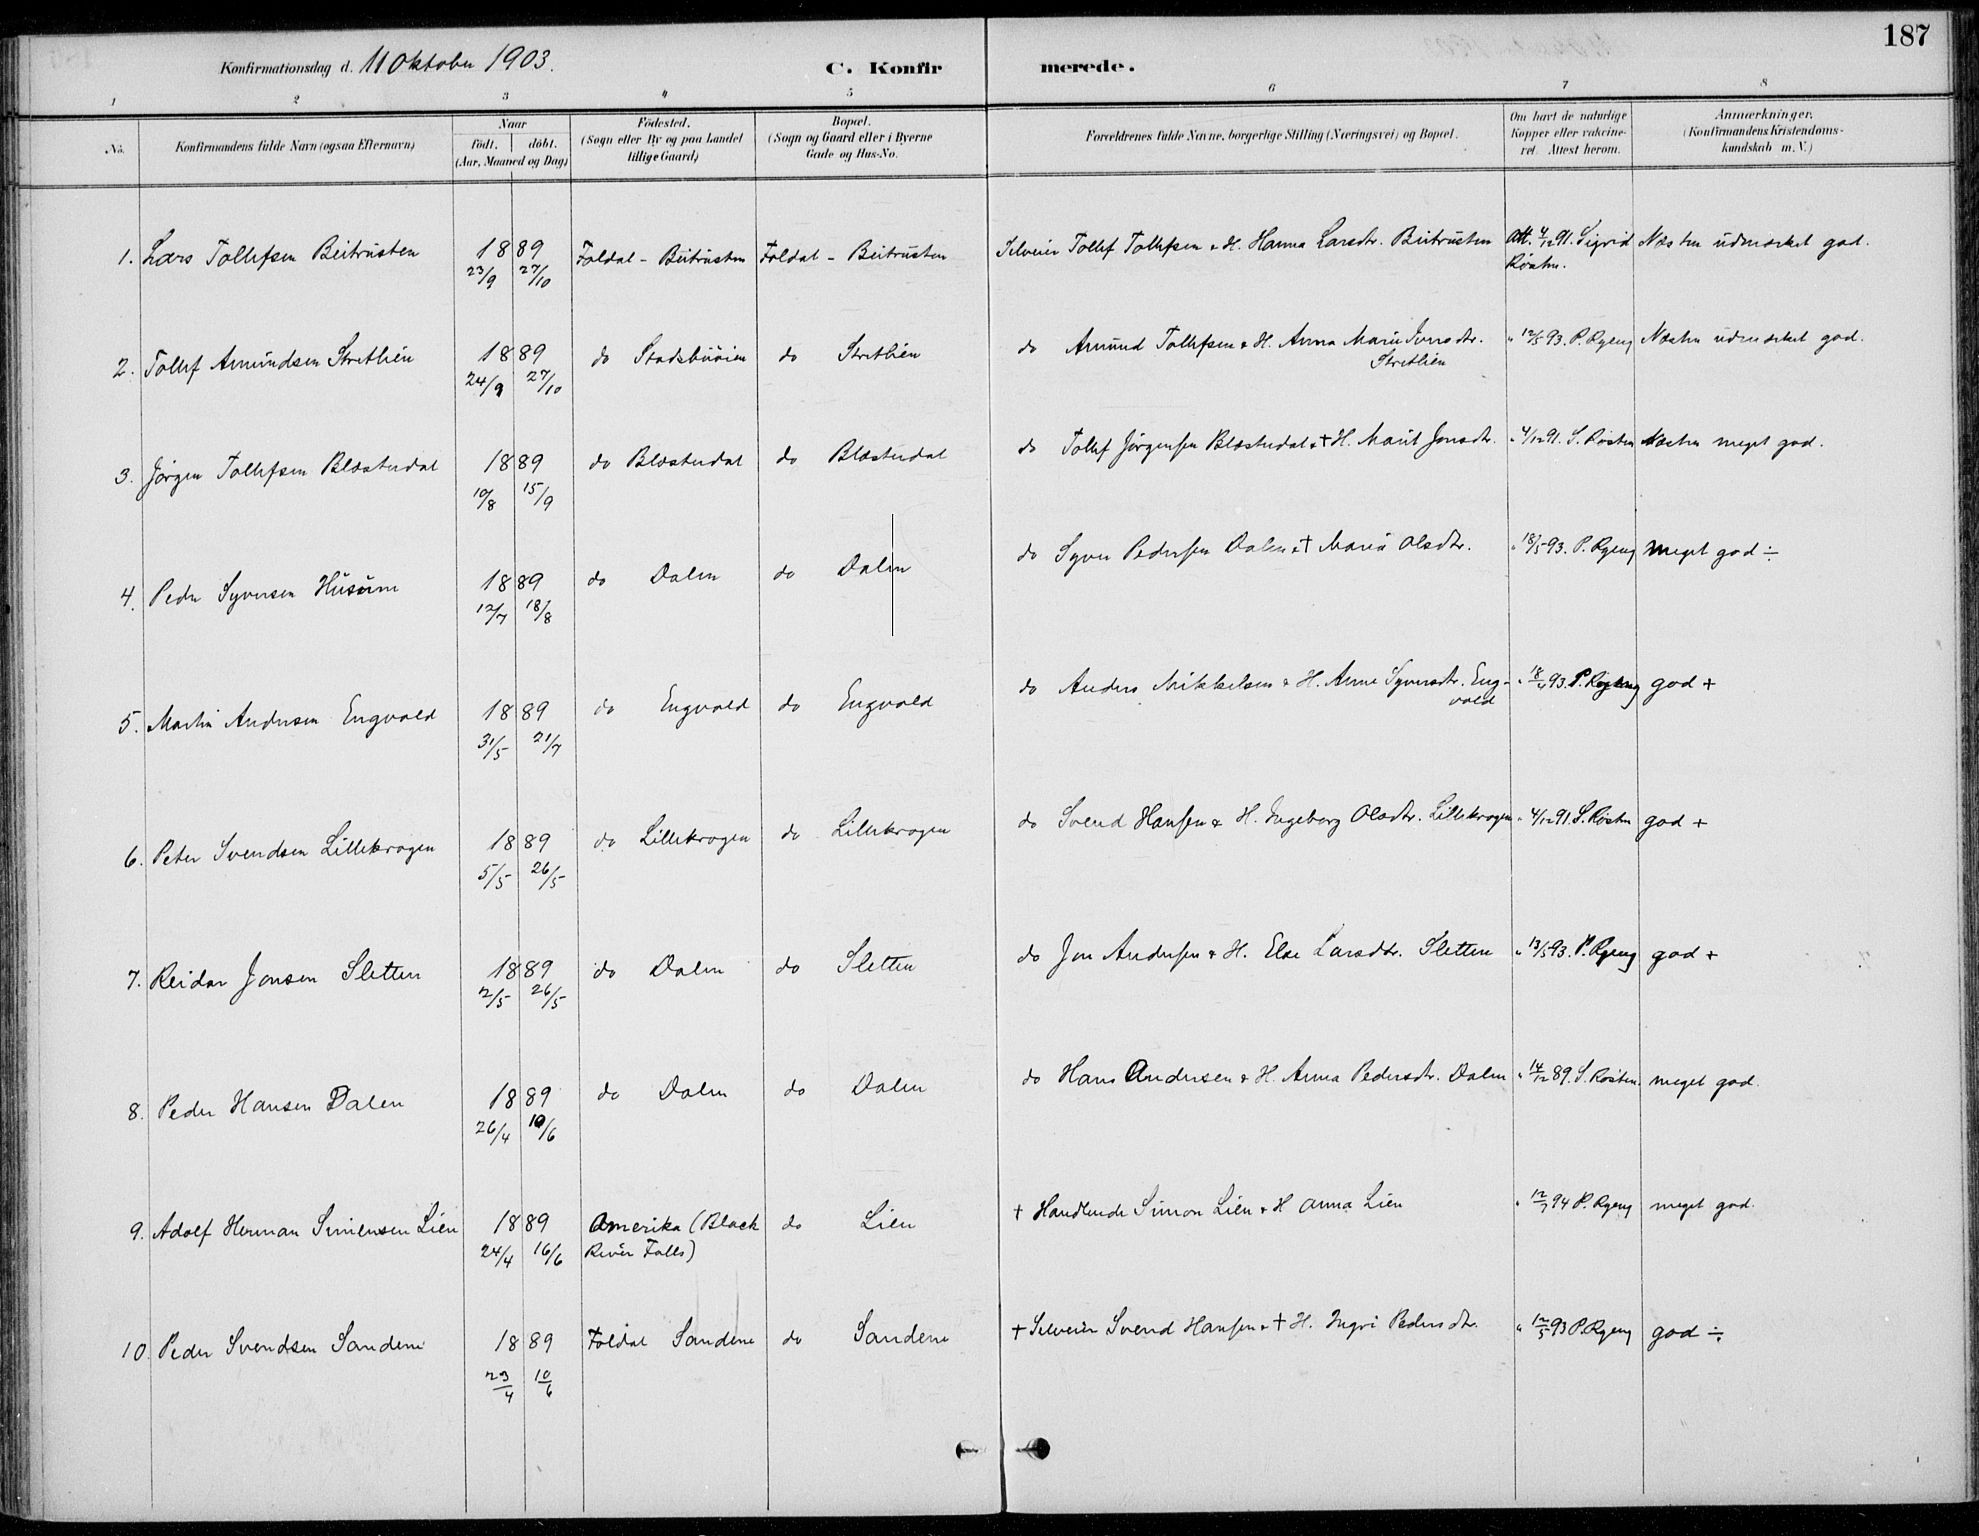 187
Konfirmationsdag d. 11 Oktober 1903.
C. Konfirmerede.
1 2 3 4 5 6 7 8
No.
Konfirmandens fulde Navn (ogsaa Efternavn)
Naar
født. døbt.
(Aar, Maaned og Dag)
Fødested.
(Sogn eller By og paa Landet
tillige Gaard)
Bopæl.
(Sogn og Gaard eller i Byerne
Gade og Hus-No.
Forældrenes fulde Navne, borgerlige Stilling (Næringsvei) og Bopæl.
Om havt de naturlige
Kopper eller vakcine-
ret. Attest herom.
Anmærkninger.
(Konfirmandens Kristendoms-
kundskab m. V.)
1. Lars Tollefsen Beitrusten 1889 Foldal - Beitrusten Foldal - Beitrusten Selveier Tollef Tollefsen & H. Hanna Larsdtr. Beitrusten Att. 4/12 91. Sigrid Næsten udmærket god.
23/9 27/10 Røsten.
2. Tollef Amundsen Stretlien 1889 do Stadsbuøien do Stretlien do Amund Tollefsen & H. Anna Marie Jonsdtr. " 12/5 93. P. Ryeng Næsten udmærket god.
24/9 27/10 Stretlien
3. Jørgen Tollefsen Blæsterdal 1889 do Blæsterdal do Blæsterdal do Tollef Jørgensen Blæsterdal & † H. Marit Jonsdtr. " 4/12 91. S. Røsten Næsten meget god.
10/8 15/9
4. Peder Syversen Husum 1889 do Dalen do Dalen do Syver Pedersen Dalen & † Marie Olsdtr. " 18/5 93. P. Ryeng meget god ÷
12/7 18/8
5. Martin Andersen Engvold 1889 do Engvold do Engvold do Anders Mikkelsen & H. Anne Syversdtr. Eng- " 18/4 93. P. Ryeng god +
31/5 21/7 vold
6. Peter Svendsen Lillekrogen 1889 do Lillekrogen do Lillekrogen do Svend Hansen & H. Ingeborg Olsdtr. Lillekrogen " 4/12 91. S. Røsten god +
5/5 26/5
7. Reidar Jonsen Sletten 1889 do Dalen do Sletten do Jon Andersen & H. Else Larsdtr. Sletten " 13/5 93. P. Ryeng god +
2/5 26/5
8. Peder Hansen Dalen 1889 do Dalen do Dalen do Hans Andersen & H. Anna Pedersdtr. Dalen " 14/12 89. S. Røsten. meget god.
26/4 10/6
9. Adolf Herman Simensen Lien 1889 Amerika (Black do Lien † Handlende Simon Lien & H Anna Lien " 12/7 94 P. Ryeng meget god.
24/4 16/6 River Falls)
10. Peder Svendsen Sandene 1889 Foldal Sandene do Sandene † Selveier Svend Hansen & † H. Ingri Pedersdtr. " 12/5 93 P. Ryeng god ÷
23/4 10/6